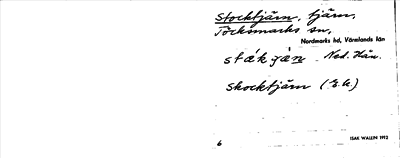 Stocktjärn, tjärn,
Töcksmarks sn,
Nordmarks hd, Värmlands län
Ned. Hån.
Skocktjärn (E.K.)
6 ISAK WALLIN 1992